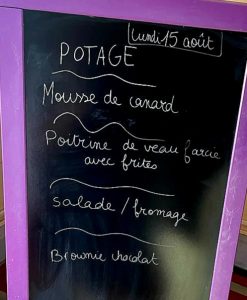 Lundi 15 août
POTAGE
Mousse de canard
Poitrine de veau farcie
avec frites
Salade / fromage
Brownie chocolat